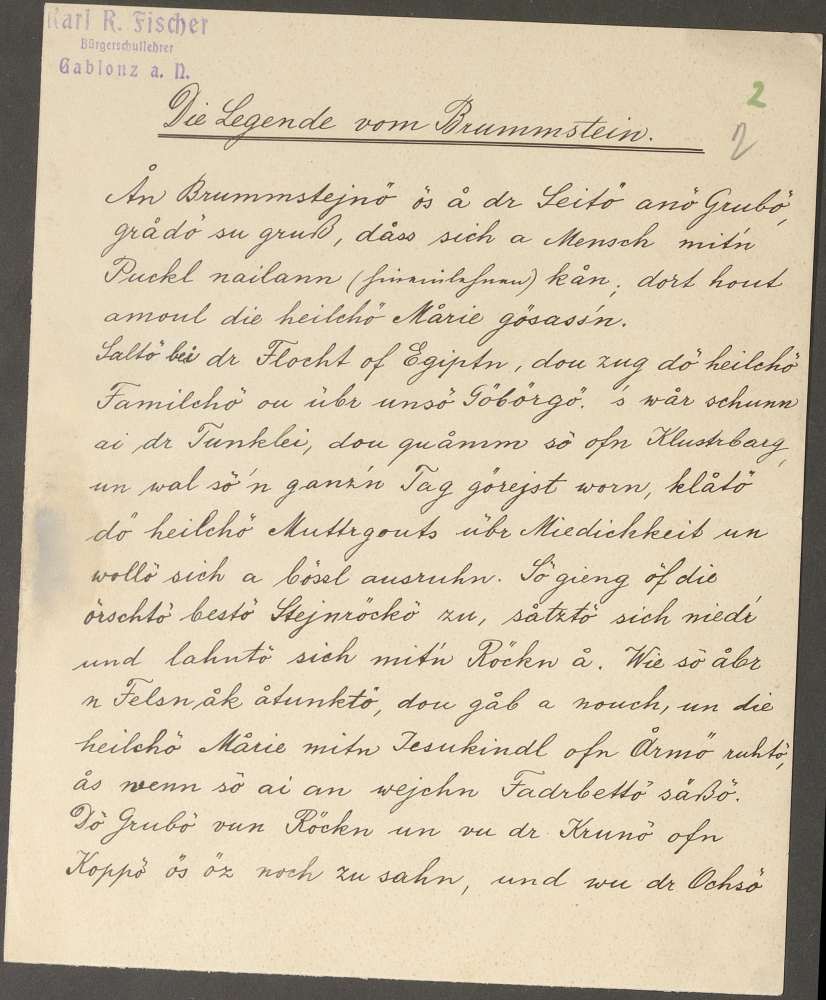 Karl R. Fischer
Bürgerschullehrer
Gablonz a. N.
2
2
Die Legende vom Brummstein.
Ån Brummstejnö ös å dr Seitö anö Grubö,
grådö su gruß, dåss sich a Mensch mit'n
Puckl nailann (hineinlehnen) kån, dort hout
amoul die heilchö Mårie gösass'n.
Saltö bei dr Flocht of Egiptn, dou zug dö heilchö
Familchö ou übr unsö Göbörgö. 's wår schunn
ai dr Tunklei, dou quåmm sö ofn Klustrbarg,
un wal sö 'n ganz'n Tag görejst worn, klåtö
dö heilchö Muttrgouts übr Miedichkeit un
wollö sich a bössl ausruhn. Sö gieng öf die
örschtö bestö Stejnröckö zu, såtztö sich niedr
und lahntö sich mit'n Röckn å. Wie sö åbr
n Felsn åk åtunktö, dou gåb a nouch, un die
heilchö Mårie mitn Jesukindl ofn Årmö ruhtö,
ås wenn sö ai an wejchn Fadrbettö såßö.
Dö Grubö vun Röckn un vu dr Krunö ofn
Koppö ös öz noch zu sahn, und wu dr Ochsö